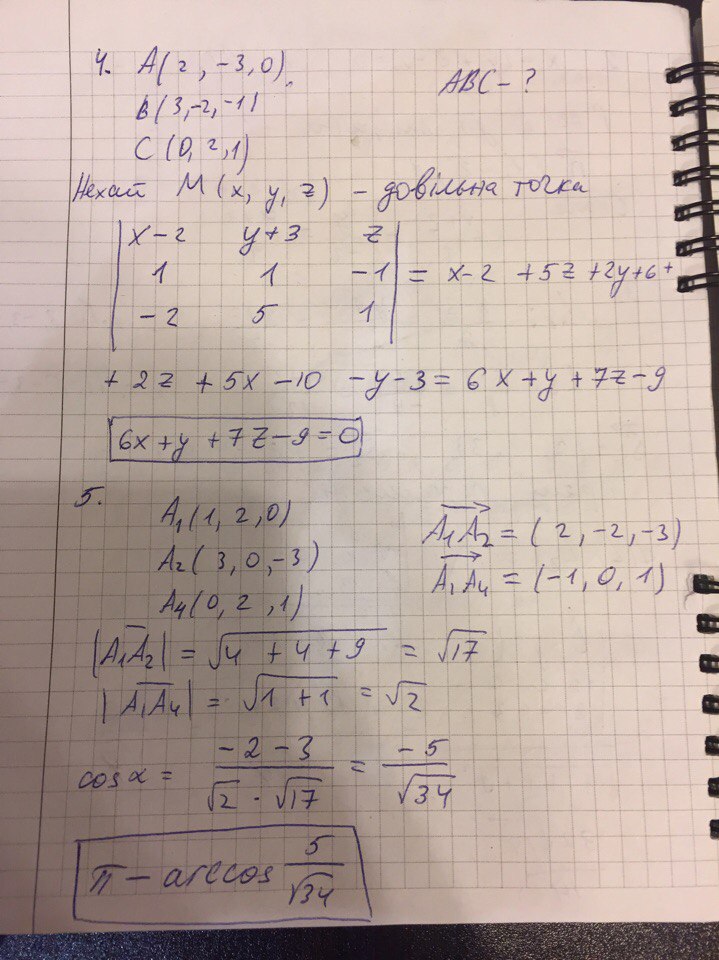 4. A(2, -3, 0)
ABC - ?
B(3, -2, -1)
C(0, 2, 1)
Нехай M(x, y, z) - довільна точка
| x-2 y+3 z |
| 1 1 -1 | = x-2 +5z +2y+6 +
| -2 5 1 |
+ 2z + 5x - 10 - y - 3 = 6x + y + 7z - 9
6x + y + 7z - 9 = 0
5.
A₁(1, 2, 0)
A₁A₂ = (2, -2, -3)
A₂(3, 0, -3)
A₁A₄ = (-1, 0, 1)
A₄(0, 2, 1)
|A₁A₂| = √(4 + 4 + 9) = √17
|A₁A₄| = √(1 + 1) = √2
cos α = (-2 - 3)/(√2 · √17) = -5/√34
π - arccos 5/√34